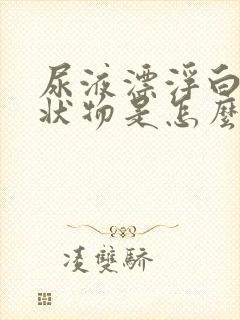 尿液漂浮白
狀物是怎麼
凌雙驕